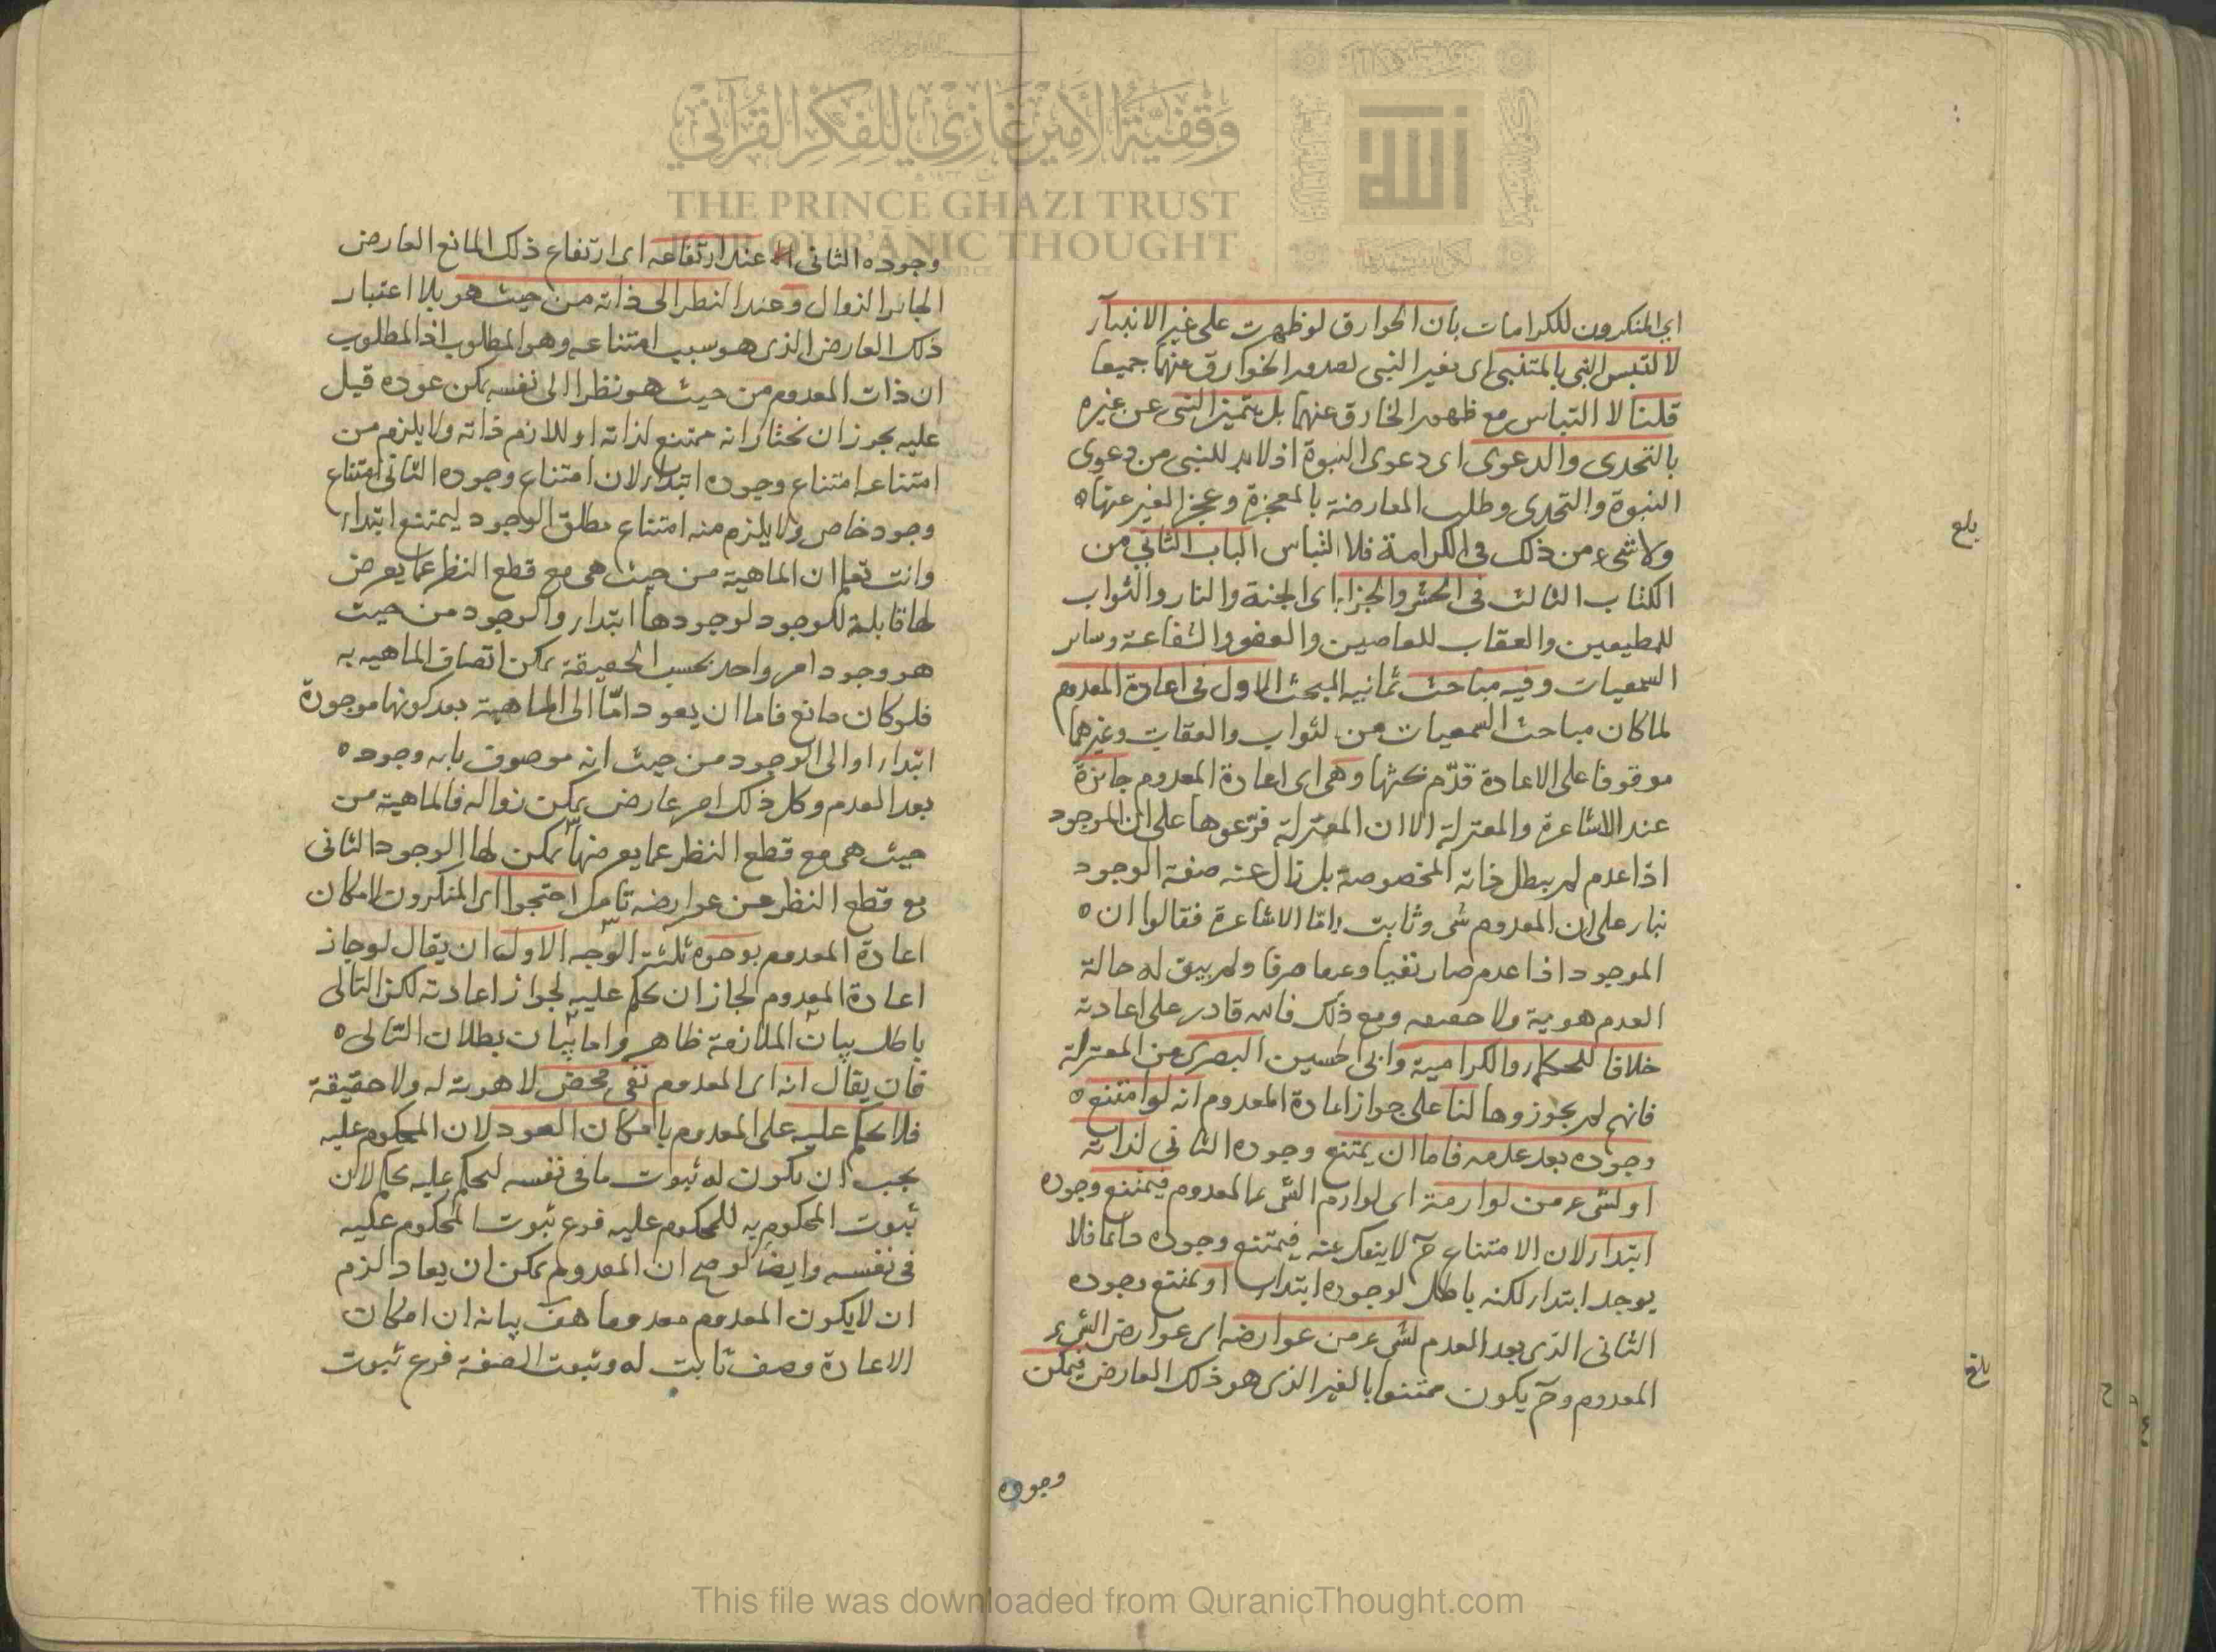 اى المنكرون للكرامات بان الخوارق لو ظهرت على غير الانبياء
لا لتبس النبى بالمتنبى اى بغير النبى لصدور الخوارق عنهما جميعا
قلنا لا التباس مع ظهور الخارق عنهما بل يتميز النبى عن غيره
بالتحدى والدعوى اى دعوى النبوة اذ لا بد للنبى من دعوى
النبوة والتحدى وطلب المعارضة بالمعجزة وعجز الغير عنها ه
ولا شىء من ذلك فى الكرامة فلا التباس الباب الثانى من
الكتاب الثالث فى الحشر والجزاء اى الجنة والنار والثواب
للمطيعين والعقاب للعاصين والعفو والشفاعة وساير
السمعيات وفيه مباحث ثمانية المبحث الاول فى اعادة المعدوم
لما كان مباحث السمعيات من لثواب والعقاب وغيرهما
موقوفا على الاعادة قدّم بحثها وهى اى اعادة المعدوم جائزة
عند الاشاعرة والمعتزلة الا ان المعتزلة فرّعوها على ان الموجود
اذا عدم لم يبطل ذاته المخصوصة بل زال عنه صفة الوجود
بناء على ان المعدوم شى وثابت وامّا الاشاعرة فقالوا ان ه
الموجود اذا عدم صار نفيا وعدما صرفا ولم يبق له حالة
العدم هوية ولا حقيقه ومع ذلك فالله قادر على اعادته
خلافا للحكماء والكرامية وابى الحسين البصرى من المعتزلة
فانهم لم يجوزوها لنا على جواز اعادة المعدوم انه لو امتنع ه
وجوده بعد عدمه فاما ان يمتنع وجوده الثانى لذاته
او لشىء من لوازمه اى لوازم الشىء المعدوم فيمتنع وجوده
ابتداء لان الامتناع ح لا ينفك عنه فيمتنع وجوده دائما فلا
يوجد ابتداء لكنه باطل لوجوده ابتداء او يمتنع وجوده
الثانى الذى بعد العدم لشىء من عوارضه اى عوارض الشىء
المعدوم وح يكون ممتنعا بالغير الذى هو ذلك العارض فيمكن
وجوده
بلغ
بلغ
وجوده الثانى عند ارتفاعه اى ارتفاع ذلك المانع العارض
الجائز الزوال وعند النظر الى ذاته من حيث هو بلا اعتبار
ذلك العارض الذى هو سبب امتناعه وهو المطلوب اذ المطلوب
ان ذات المعدوم من حيث هو نظرا الى نفسه يمكن عوده قيل
عليه يجوز ان نختار انه ممتنع لذاته او للازم ذاته ولا يلزم من
امتناعه امتناع وجوده ابتداء لان امتناع وجوده الثانى امتناع
وجود خاص ولا يلزم منه امتناع مطلق الوجود ليمتنع ابتداء
وانت تعلم ان الماهية من حيث هى مع قطع النظر عما يعرض
لها قابلة للوجود لوجودها ابتداء والوجود من حيث
هو وجود امر واحد بحسب الحقيقة يمكن اتصاف الماهيه به
فلو كان مانع فاما ان يعود امّا الى الماهية بعد كونها موجودة
ابتداء او الى الوجود من حيث انه موصوف بانه وجود ه
بعد العدم وكل ذلك امر عارض يمكن زواله فالماهية من
حيث هى مع قطع النظر عما يعرضها يمكن لها الوجود الثانى
مع قطع النظر عن عوارضه تامل احتجوا اى المنكرون لامكان
اعادة المعدوم بوجوه ثلثة الوجه الاول ان يقال لو جاز
اعادة المعدوم لجاز ان يحكم عليه لجواز اعادته لكن التالى
باطل بيان الملازمة ظاهر واما بيان بطلان التالى ه
فان يقال انه اى المعدوم نفى محض لا هوية له ولا حقيقة
فلا يحكم عليه على المعدوم بامكان العود لان المحكوم عليه
يجب ان يكون له ثبوت ما فى نفسه ليحكم عليه بحكم لان
ثبوت المحكوم به للمحكوم عليه فرع ثبوت المحكوم عليه
فى نفسه وايضا لو صح ان المعدوم يمكن ان يعاد لزم
ان لا يكون المعدوم معدوما هف بيانه ان امكان
الاعادة وصف ثابت له وثبوت الصفة فرع ثبوت
وقفية الأمير غازي للفكر القرآني
THE PRINCE GHAZI TRUST
FOR QUR'ĀNIC THOUGHT
الله
This file was downloaded from QuranicThought.com